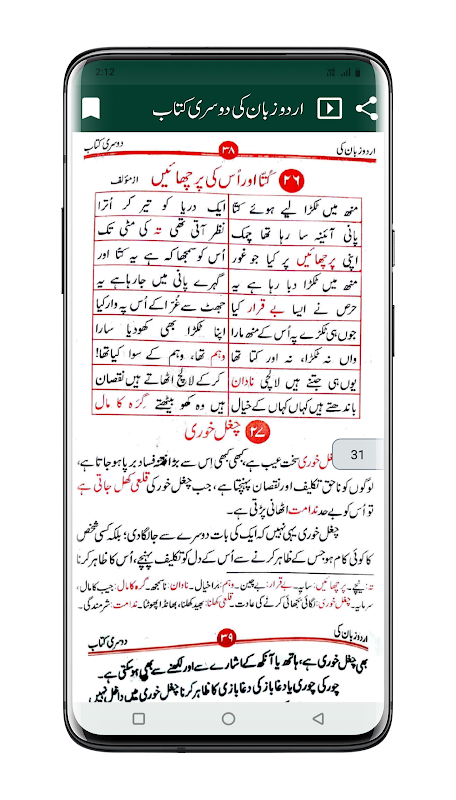 2:12
اردو زبان کی دوسری کتاب
اردو زبان کی ۳۸ دوسری کتاب
۲۶ کُتّا اور اُس کی پرچھائیں از مؤلف
منھ میں ٹکڑا لیے ہوئے کتا ایک دریا کو تیر کر اُترا
پانی آئینہ سا رہا تھا چمک نظر آتی تھی تہ کی مٹی تک
اپنی پرچھائیں پر کیا جو غور اُس کو سمجھا کہ ہے یہ کتا اور
منھ میں ٹکڑا دبا رہا ہے یہ گہرے پانی میں جا رہا ہے یہ
حرص نے ایسا بے قرار کیا جھٹ سے غُرّا کے اُس پہ وار کیا
جوں ہی ٹکڑے پہ اُس کے منھ مارا اپنا ٹکڑا بھی کھو دیا سارا
واں نہ ٹکڑا، نہ اور کتا تھا وہم تھا، وہم کے سوا کیا تھا!
یوں ہی جتنے ہیں لالچی نادان کر کے لالچ اٹھاتے ہیں نقصان
باندھتے ہیں کہاں کہاں کے خیال ہیں وہ کھو بیٹھتے گِرَہ کا مال
۲۷ چغل خوری
غل خوری سخت عیب ہے، کبھی کبھی اِس سے بڑا فتنہ فساد برپا ہو جاتا ہے،
لوگوں کو ناحق تکلیف اور نقصان پہنچتا ہے، جب چغل خور کی قلعی کھل جاتی ہے
تو اُس کو بے حد ندامت اٹھانی پڑتی ہے۔
31
چغل خوری یہی نہیں کہ ایک کی بات دوسرے سے جا لگا دی؛ بلکہ کسی شخص
کا کوئی کام ہو جس کے ظاہر کرنے سے اُس کے دل کو تکلیف پہنچے، اُس کا ظاہر کرنا
تہ: نیچے۔ پرچھائیں: سایہ۔ بے قرار: بے چین۔ وہم: برا خیال۔ نادان: ناسمجھ۔ گرہ کا مال: جیب کا مال،
سرمایہ۔ چغل خوری: لگائی بجھائی کرنے کی عادت۔ قلعی کھلنا: بھید کھلنا، بھانڈا پھوٹنا۔ ندامت: شرمندگی۔
اردو زبان کی ۳۹ دوسری کتاب
بھی چغل خوری ہے، ہاتھ یا آنکھ کے اشارے سے اور لکھنے سے بھی ہو سکتی ہے۔
چور کی چوری یا دغا باز کی دغا بازی کا ظاہر کرنا چغل خوری میں داخل نہیں